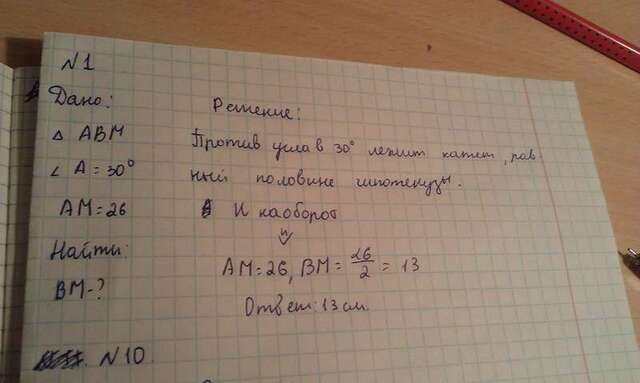 N1
Дано:
Δ ABM
∠ A = 30°
AM = 26
Найти:
BM - ?
Решение:
Против угла в 30° лежит катет, рав
ный половине гипотенузы.
И наоборот
⇓
AM = 26, BM = 26/2 = 13
Ответ: 13 см.
N 10